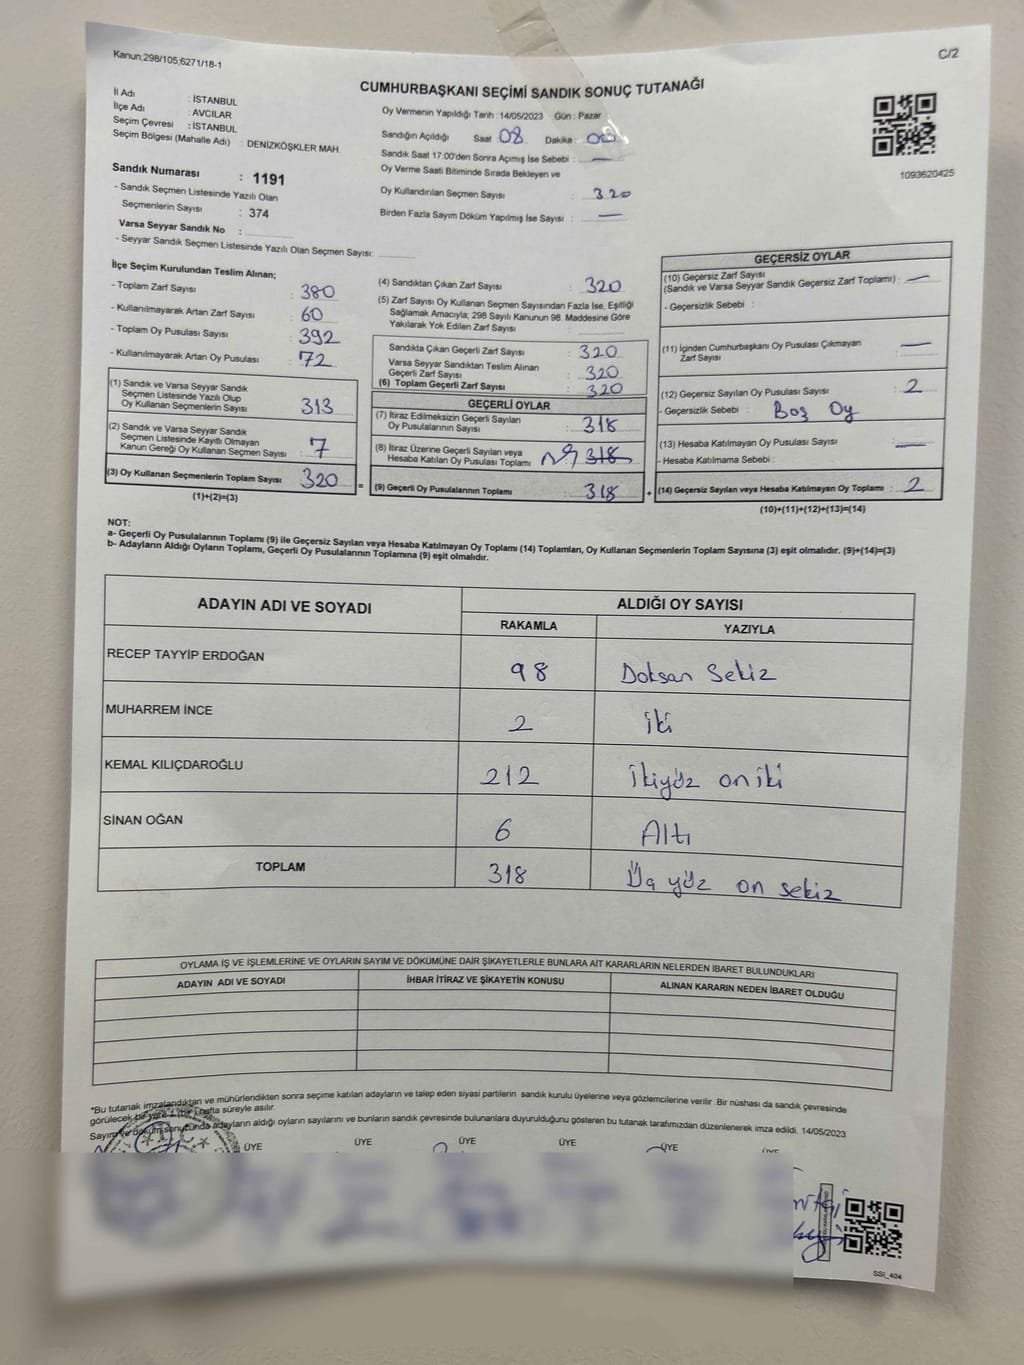 Kanun;298/105;6271/18-1
C/2
CUMHURBAŞKANI SEÇİMİ SANDIK SONUÇ TUTANAĞI
İl Adı : İSTANBUL
İlçe Adı : AVCILAR
Seçim Çevresi : İSTANBUL
Seçim Bölgesi (Mahalle Adı) : DENİZKÖŞKLER MAH.
Oy Vermenin Yapıldığı Tarih : 14/05/2023 Gün : Pazar
Sandığın Açıldığı Saat 08 Dakika : 00
Sandık Saat 17:00'den Sonra Açımış İse Sebebi : —
Oy Verme Saati Bitiminde Sırada Bekleyen ve
Oy Kullandırılan Seçmen Sayısı : 320
Birden Fazla Sayım Döküm Yapılmış İse Sayısı : —
1093620425
Sandık Numarası : 1191
- Sandık Seçmen Listesinde Yazılı Olan
Seçmenlerin Sayısı : 374
Varsa Seyyar Sandık No :
- Seyyar Sandık Seçmen Listesinde Yazılı Olan Seçmen Sayısı:
İlçe Seçim Kurulundan Teslim Alınan;
- Toplam Zarf Sayısı : 380
- Kullanılmayarak Artan Zarf Sayısı : 60
- Toplam Oy Pusulası Sayısı : 392
- Kullanılmayarak Artan Oy Pusulası : 72
(1) Sandık ve Varsa Seyyar Sandık
Seçmen Listesinde Yazılı Olup
Oy Kullanan Seçmenlerin Sayısı : 313
(2) Sandık ve Varsa Seyyar Sandık
Seçmen Listesinde Kayıtlı Olmayan
Kanun Gereği Oy Kullanan Seçmen Sayısı : 7
(3) Oy Kullanan Seçmenlerin Toplam Sayısı : 320 =
(1)+(2)=(3)
(4) Sandıktan Çıkan Zarf Sayısı : 320
(5) Zarf Sayısı Oy Kullanan Seçmen Sayısından Fazla İse, Eşitliği
Sağlamak Amacıyla; 298 Sayılı Kanunun 98. Maddesine Göre
Yakılarak Yok Edilen Zarf Sayısı :
Sandıkta Çıkan Geçerli Zarf Sayısı : 320
Varsa Seyyar Sandıktan Teslim Alınan
Geçerli Zarf Sayısı : 320
(6) Toplam Geçerli Zarf Sayısı : 320
GEÇERLİ OYLAR
(7) İtiraz Edilmeksizin Geçerli Sayılan
Oy Pusulalarının Sayısı : 318
(8) İtiraz Üzerine Geçerli Sayılan veya
Hesaba Katılan Oy Pusulası Toplamı 318
(9) Geçerli Oy Pusulalarının Toplamı : 318 +
GEÇERSİZ OYLAR
(10) Geçersiz Zarf Sayısı
(Sandık ve Varsa Seyyar Sandık Geçersiz Zarf Toplamı) : —
- Geçersizlik Sebebi :
(11) İçinden Cumhurbaşkanı Oy Pusulası Çıkmayan
Zarf Sayısı : —
(12) Geçersiz Sayılan Oy Pusulası Sayısı : 2
- Geçersizlik Sebebi : Boş Oy
(13) Hesaba Katılmayan Oy Pusulası Sayısı : —
- Hesaba Katılmama Sebebi :
(14) Geçersiz Sayılan veya Hesaba Katılmayan Oy Toplamı : 2
(10)+(11)+(12)+(13)=(14)
NOT:
a- Geçerli Oy Pusulalarının Toplamı (9) ile Geçersiz Sayılan veya Hesaba Katılmayan Oy Toplamı (14) Toplamları, Oy Kullanan Seçmenlerin Toplam Sayısına (3) eşit olmalıdır. (9)+(14)=(3)
b- Adayların Aldığı Oyların Toplamı, Geçerli Oy Pusulalarının Toplamına (9) eşit olmalıdır.
ADAYIN ADI VE SOYADI ALDIĞI OY SAYISI
RAKAMLA YAZIYLA
RECEP TAYYİP ERDOĞAN 98 Doksan Sekiz
MUHARREM İNCE 2 iki
KEMAL KILIÇDAROĞLU 212 ikiyüz oniki
SİNAN OĞAN 6 Altı
TOPLAM 318 Üç yüz on sekiz
OYLAMA İŞ VE İŞLEMLERİNE VE OYLARIN SAYIM VE DÖKÜMÜNE DAİR ŞİKAYETLERLE BUNLARA AİT KARARLARIN NELERDEN İBARET BULUNDUKLARI
ADAYIN ADI VE SOYADI İHBAR İTİRAZ VE ŞİKAYETİN KONUSU ALINAN KARARIN NEDEN İBARET OLDUĞU
*Bu tutanak imzalandıktan ve mühürlendikten sonra seçime katılan adayların ve talep eden siyasi partilerin sandık kurulu üyelerine veya gözlemcilerine verilir. Bir nüshası da sandık çevresinde
görülecek bir yere 1 (bir) hafta süreyle asılır.
Sayım ve döküm sonucunda adayların aldığı oyların sayılarını ve bunların sandık çevresinde bulunanlara duyurulduğunu gösteren bu tutanak tarafımızdan düzenlenerek imza edildi. 14/05/2023
ÜYE ÜYE ÜYE ÜYE ÜYE ÜYE
SSI_404